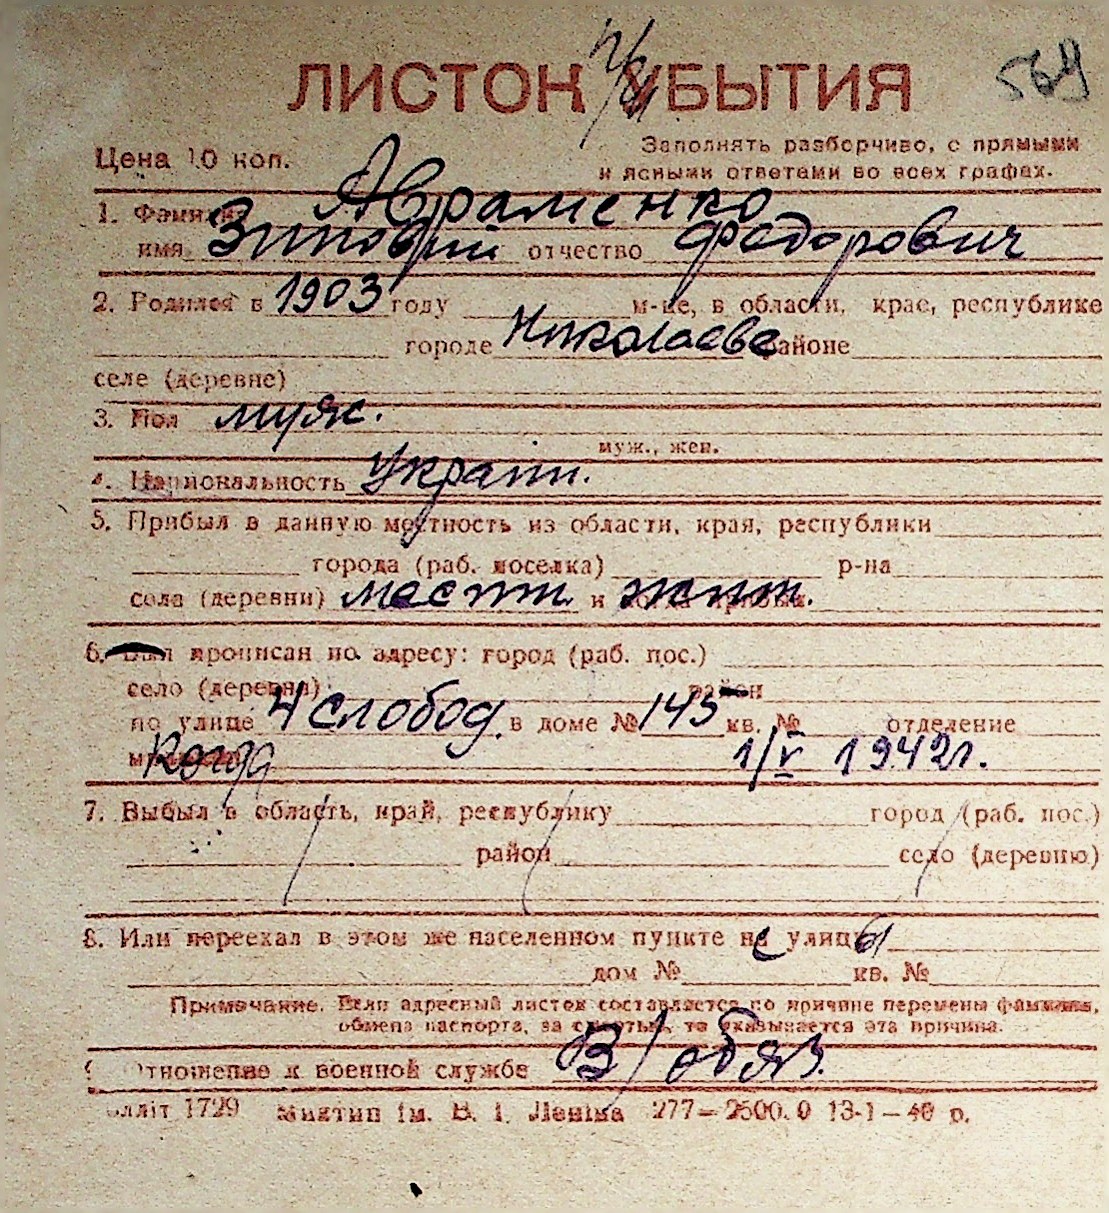 ЛИСТОК УБЫТИЯ
569
Цена 10 коп.
Заполнять разборчиво, с прямыми
и ясными ответами во всех графах.
1. Фамилия Авраменко
имя Зиновий отчество Федорович
2. Родился в 1903 году м-це, в области, крае, республике
городе Николаеве районе
селе (деревне)
3. Пол муж.
муж., жен.
4. Национальность Украин.
5. Прибыл в данную местность из области, края, республики
города (раб. поселка) р-на
села (деревни) местн. и жит.
6. прописан по адресу: город (раб. пос.)
село (деревня) район
по улице 4 слобод. в доме № 145 кв. № отделение
когда 1/V 1942г.
7. Выбыл в область, край, республику город (раб. пос.)
район село (деревню)
8. Или переехал в этом же населенном пункте с улицы
дом № кв. №
Примечание. Если адресный листок составляется по причине перемены фамилии,
обмена паспорта, за смертью, то указывается эта причина.
отношение к военной службе В/обяз.
лліт 1729 Миктип ім. В. І. Леніна 277—2500.0 13-1—40 р.